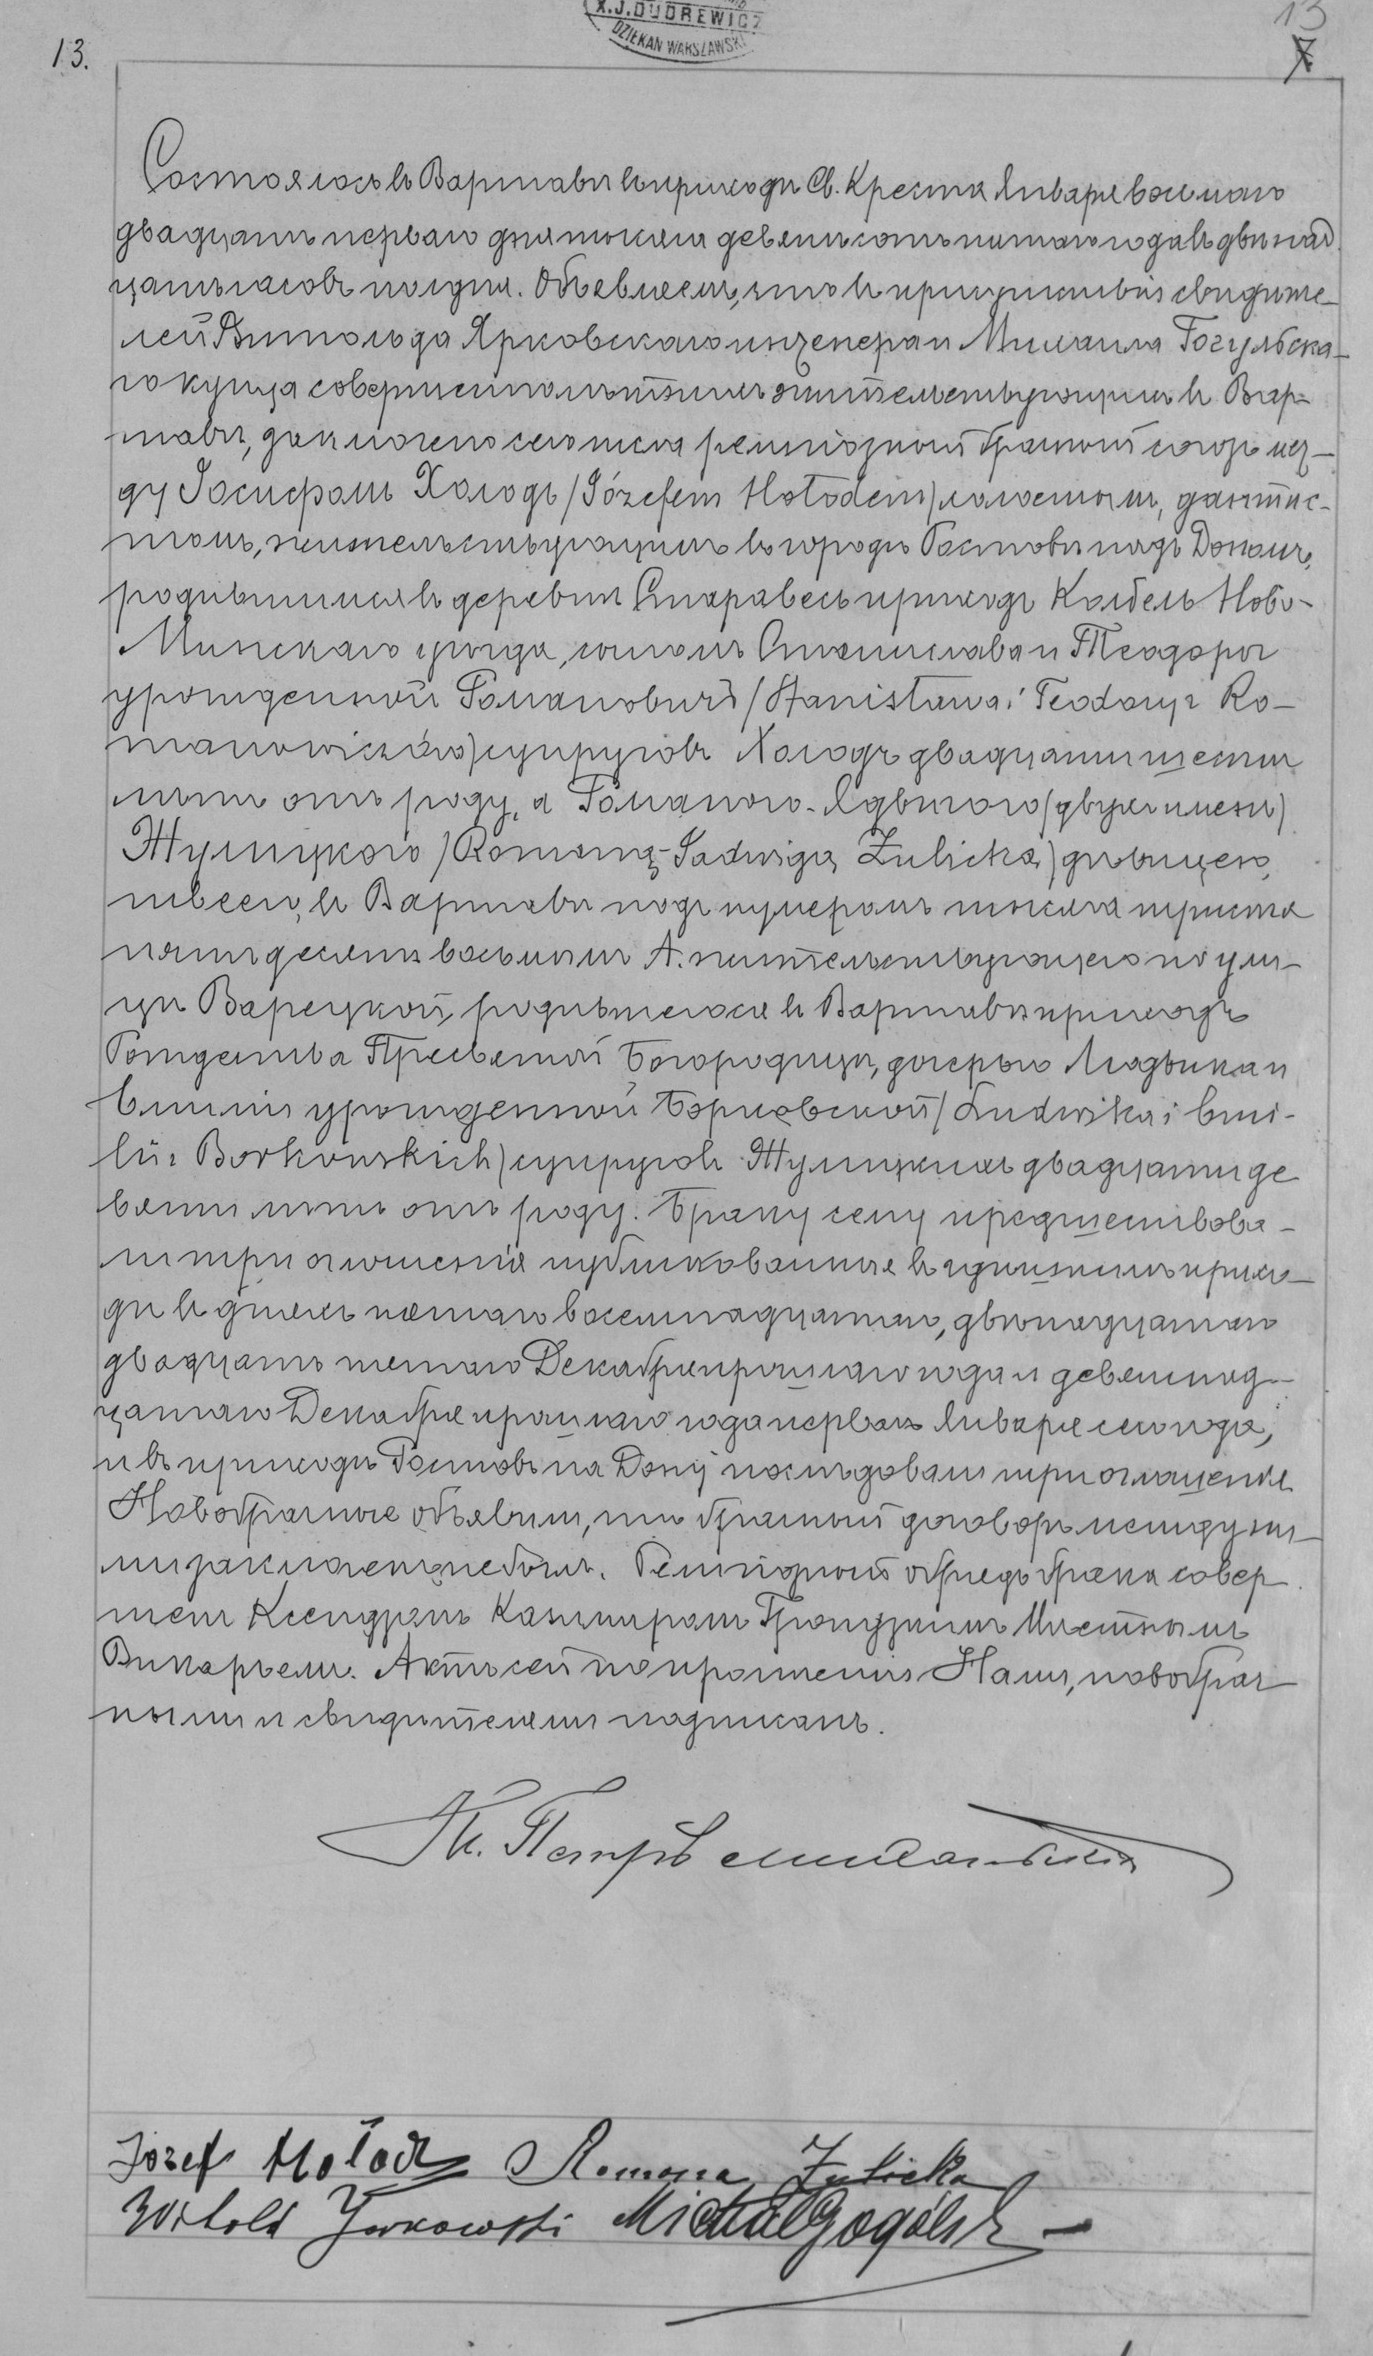 X.J.DUDREWICZ
DZIEKAN WARSZAWSKI
13.
13
7
Состоялось въ Варшавѣ въ приходѣ Св. Креста Января восьмаго
двадцать перваго дня тысяча девятьсотъ пятаго года въ двѣнад
цать часовъ полудня. Объявляемъ, что въ присутствіи свидѣте-
лей Витольда Ярковскаго инженера и Михаила Гогульска-
го купца совершеннолѣтнихъ жительствующихъ въ Вар-
шавѣ, заключено сего числа религіозный брачный союзъ меж-
ду Іосифомъ Холодъ /Józefem Hołodem/ холостымъ, дантис-
томъ, жительствующимъ въ городѣ Ростовѣ надъ Дономъ,
родившимся въ деревнѣ Старавесь приходѣ Колбель Ново-
Минскаго уѣзда, сыномъ Станислава и Теодоры
урожденной Романовичъ /Stanisława i Teodory z Ro-
manowiczów/ супруговъ Холодъ двадцати шести
лѣтъ отъ роду, а Романою-Ядвигою /двухъ именъ/
Жулицкою /Romaną-Jadwigą Żulicką/ дѣвицею,
швеею, въ Варшавѣ подъ нумеромъ тысяча триста
пятьдесятъ восьмымъ А. жительствующею по ули-
цѣ Варецкой, родившеюся въ Варшавѣ приходѣ
Рождества Пресвятой Богородицы, дочерью Людвика и
Емиліи урожденной Борковской /Ludwika i Emi-
lii z Borkowskich/ супруговъ Жулицкихъ двадцати де
вяти лѣтъ отъ роду. Браку сему предшествова-
ли три оглашенія публикованныя въ здѣшнемъ прихо-
дѣ въ дняхъ пятаго восемнадцатаго, двѣнадцатаго
двадцать пятаго Декабря прошлаго года и девятнад-
цатаго Декабря прошлаго года перваго Января сего года,
и въ приходѣ Ростовъ на Дону послѣдовали три оглашенія
Новобрачные объявили, что брачный договоръ между ни-
ми заключенъ не былъ. Религіозный обрядъ брака совер
шенъ Ксендзомъ Казимиромъ Гронудзкимъ Мѣстнымъ
Викаріемъ. Актъ сей по прочтеніи Нами, новобрач
ными и свидѣтелями подписанъ.
Кс. Петръ
Józef Hołod Romana Żulicka
Witold Jarkowski Michał Gogólski